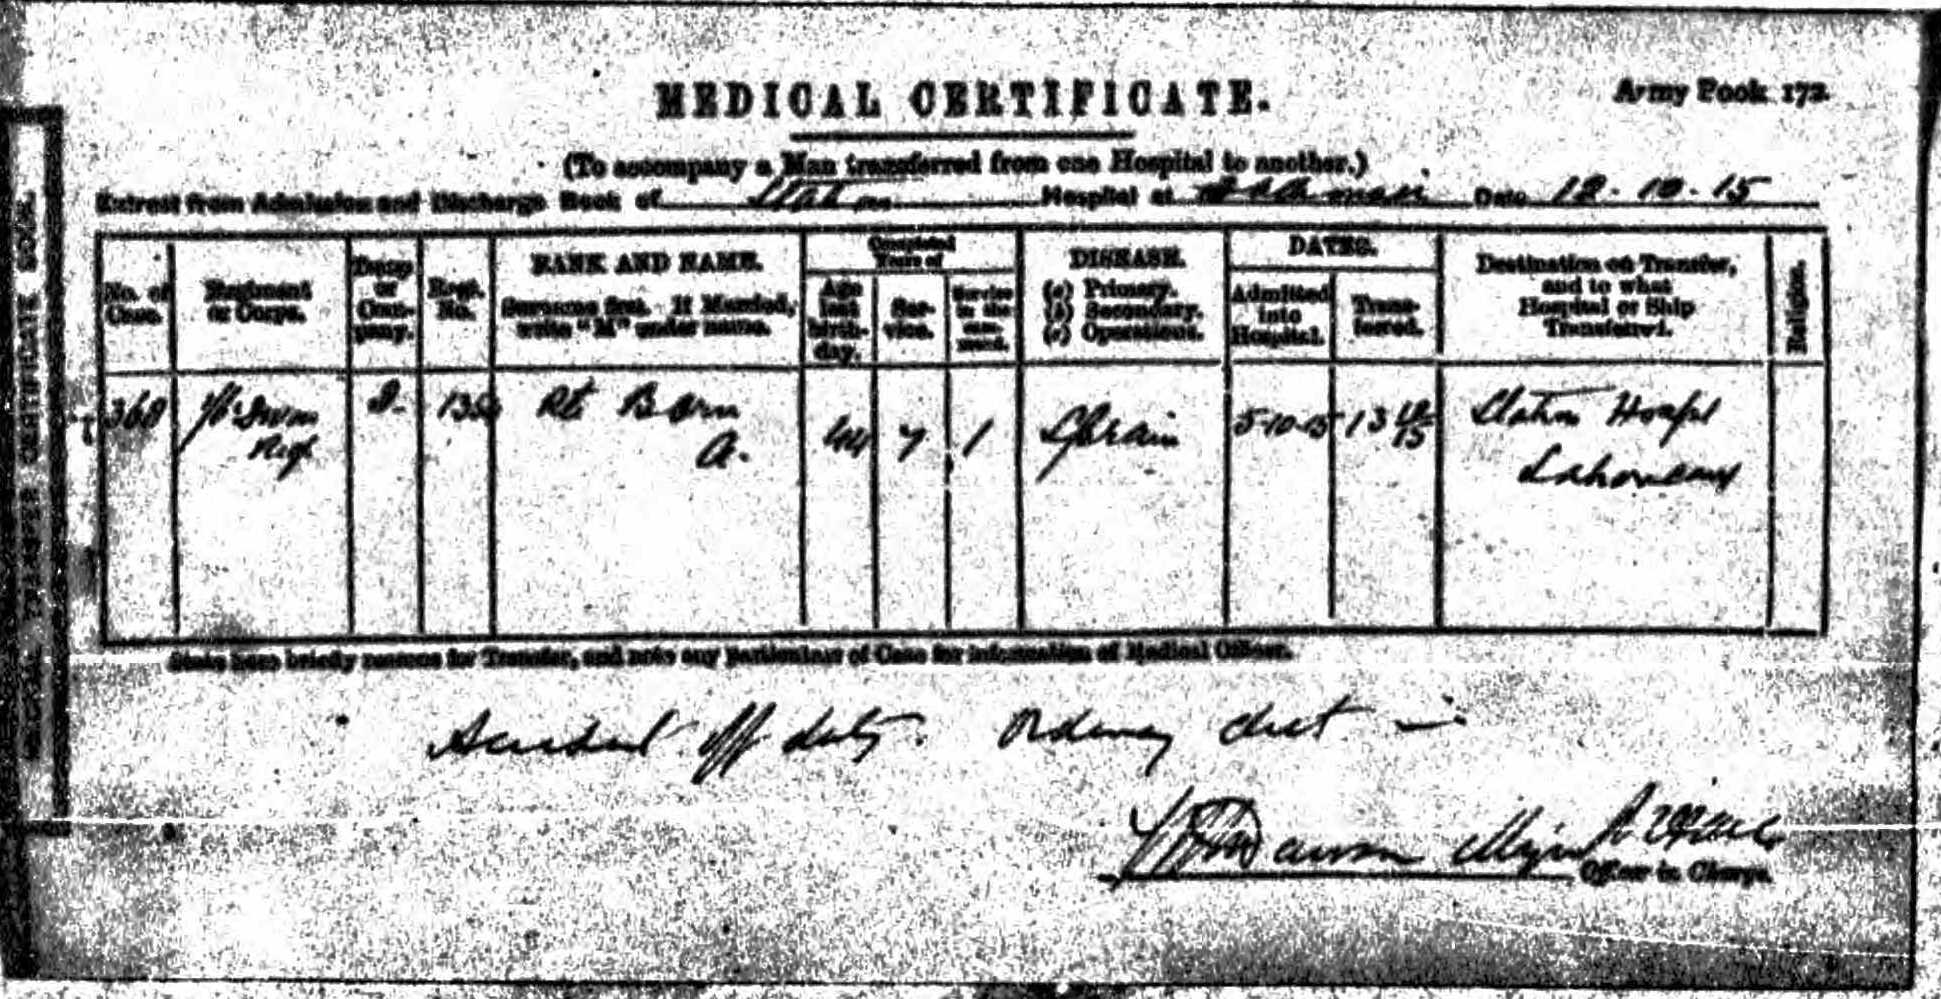 MEDICAL CERTIFICATE.
Army Book 172.
(To accompany a Man transferred from one Hospital to another.)
Extract from Admission and Discharge Book of Station Hospital at Date 12-10-15
No. of Case.
Regiment or Corps.
Troop or Company.
Regt. No.
RANK AND NAME.
Surname first. If Married, write "M" under name.
Completed Years of
Age last birthday.
Service.
Service in the command.
DISEASE.
(a) Primary.
(b) Secondary.
(c) Operations.
DATES.
Admitted into Hospital.
Transferred.
Destination on Transfer, and to what Hospital or Ship Transferred.
Religion.
360 D. 135 Pt. Born 44 7 1 Sprain 5-10-15 13 10/15 Station Hospl
Regt A. Lahore
State here briefly reasons for Transfer, and note any particulars of Case for information of Medical Officer.
Accident off duty. Ordinary diet —
Major
Officer in Charge.
MEDICAL TRANSFER CERTIFICATE BOOK.